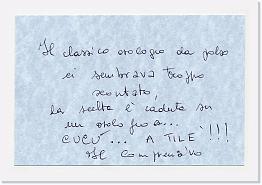 Il classico orologio da polso
ci sembrava troppo
scontato,
la scelta è caduta su
un orologio a...
CUCÙ... A TILE'!!!